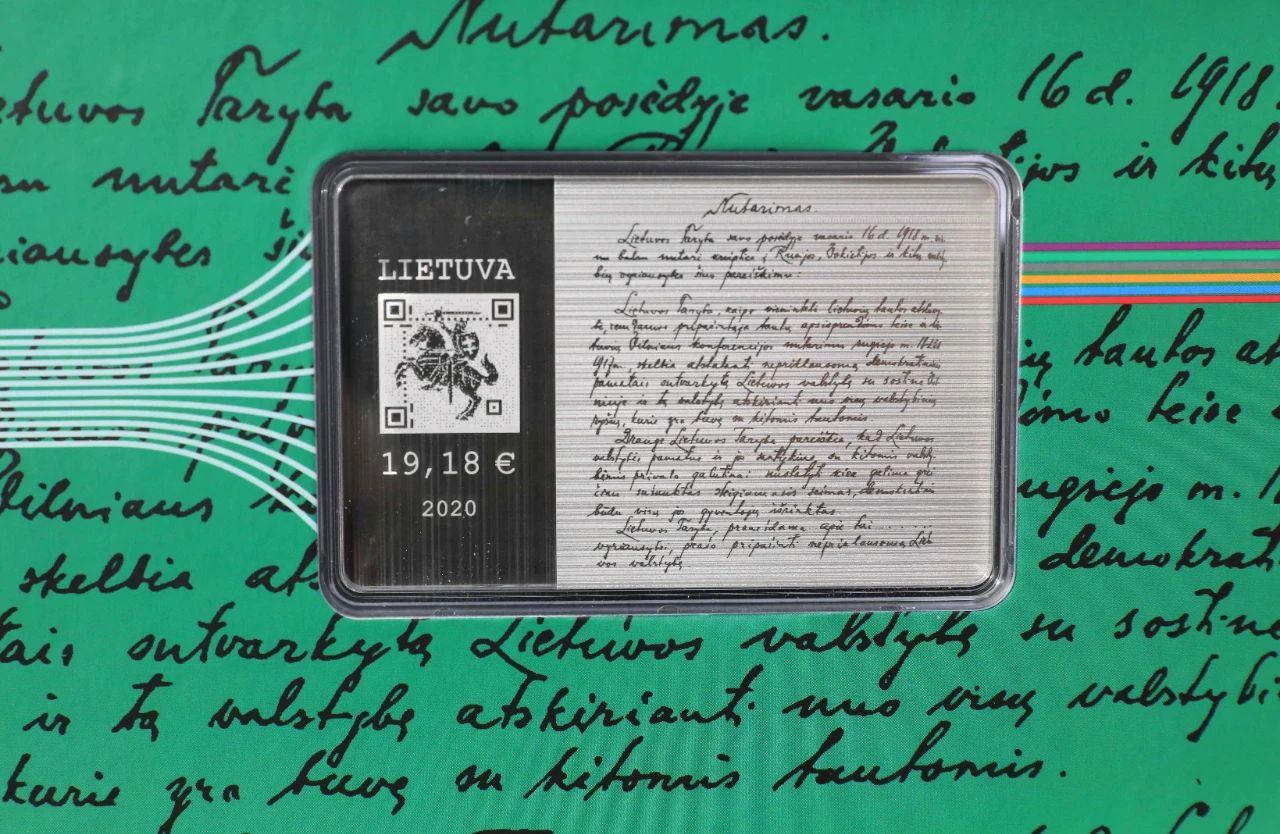 Nutarimas.
etuvos Taryba savo posėdyje vasario 16 d. 1918
nutarė ijos ir kitų
riausybes ši
ių tautos at
imo teise
Vilniaus ugsėjo m.
skelbia ats demokrat
tais sutvarkytą Lietuvos valstybę su sostine
ir tą valstybę atskirianti nuo visų valstybi
kurie yra buvę su kitomis tautomis.
LIETUVA
19,18 €
2020
Nutarimas.
Lietuvos Taryba savo posėdyje vasario 16 d. 1918 m. vi.
nu balsu nutarė kreiptis į Rusijos, Vokietijos ir kitų valsty
bių vyriausybes šiuo pareiškimu:
Lietuvos Taryba, kaipo vienintelė lietuvių tautos atstovy
bė, remdamos pripažintąja tautų apsisprendimo teise ir lie
tuvių Vilniaus konferencijos nutarimu rugsėjo m. 18-23 d.
1917 m. skelbia atstatanti nepriklausomą, demokratiniais
pamatais sutvarkytą Lietuvos valstybę su sostine Vil
niuje ir tą valstybę atskirianti nuo visų valstybinių
ryšių, kurie yra buvę su kitomis tautomis.
Drauge Lietuvos Taryba pareiškia, kad Lietuvos
valstybės pamatus ir jos santykius su kitomis valsty
bėmis privalo galutinai nustatyti kiek galima grei
čiau sušauktas steigiamasis seimas, demokratiniu
būdu visų jo gyventojų išrinktas.
Lietuvos Taryba, pranešdama apie tai . . . . . .
vyriausybei, prašo pripažinti nepriklausomą Lietu
vos valstybę.